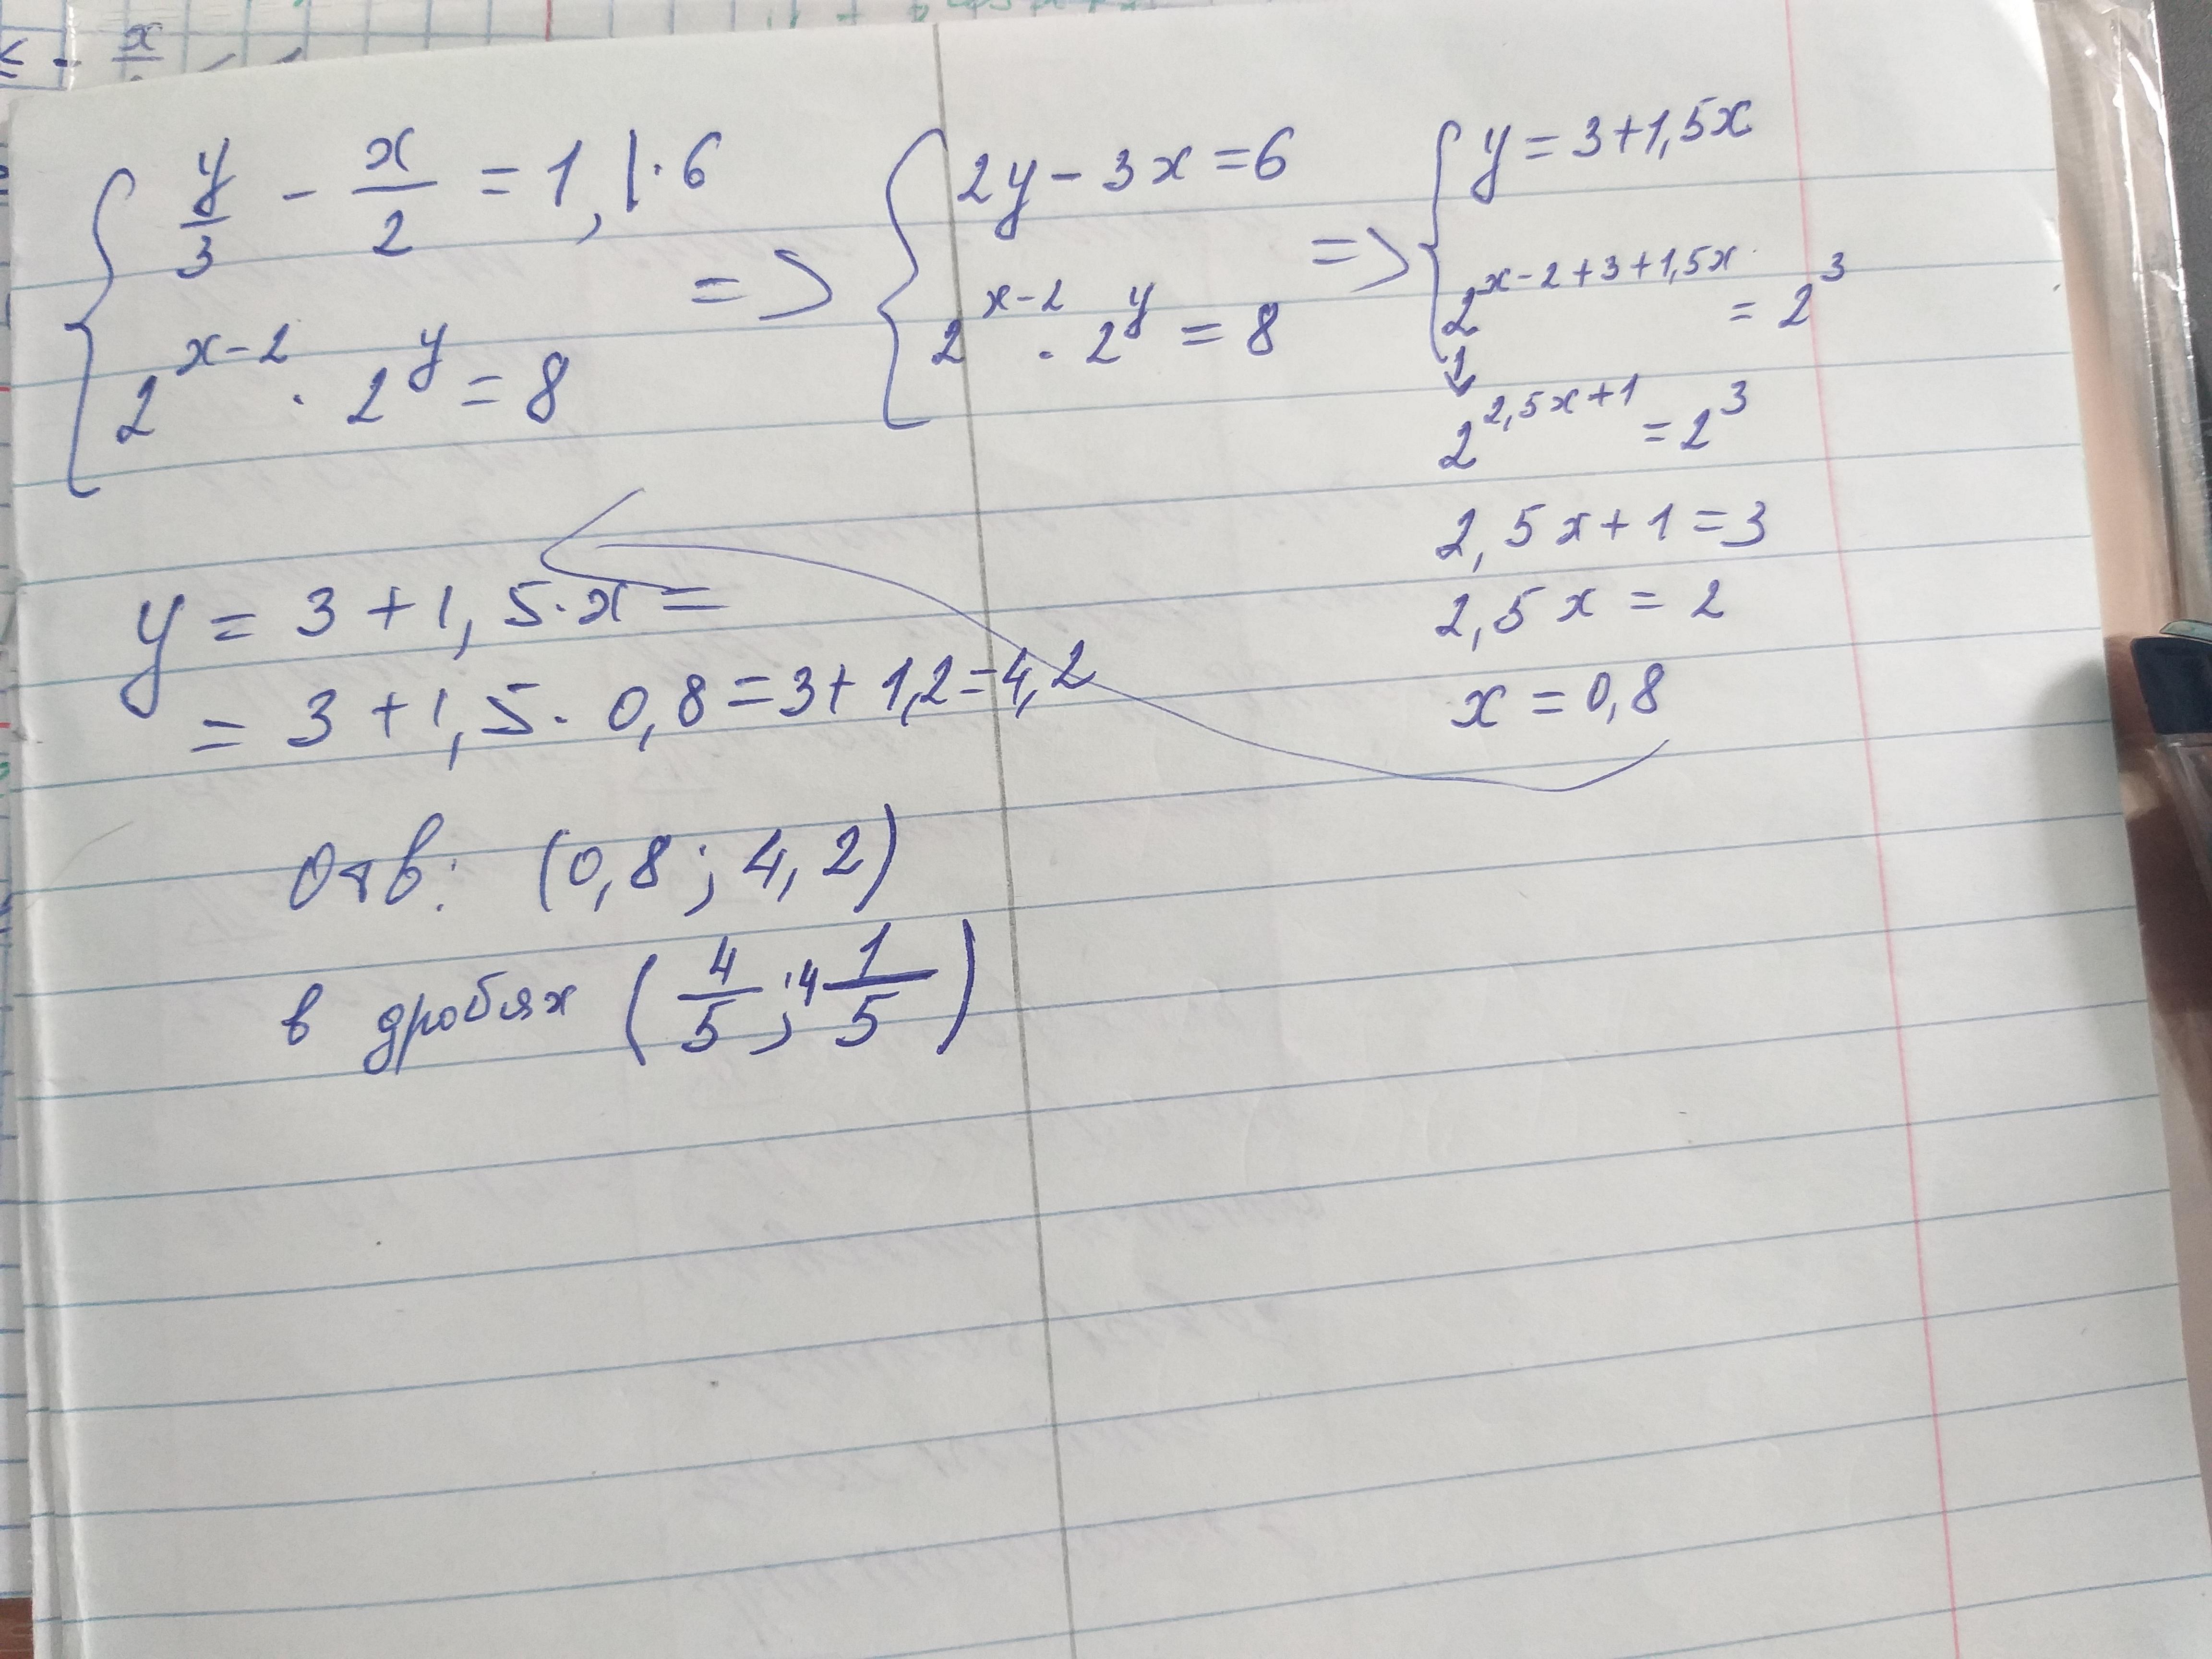 y/3 - x/2 = 1, |·6
2^(x-2) · 2^y = 8
=>
2y - 3x = 6
2^(x-2) · 2^y = 8
=>
y = 3+1,5x
2^(x-2+3+1,5x) = 2^3
2^(2,5x+1) = 2^3
2,5x+1=3
2,5x = 2
x = 0,8
y = 3 + 1,5·x =
= 3 + 1,5 · 0,8 = 3 + 1,2 = 4,2
Отв: (0,8 ; 4,2)
в дробях (4/5 ; 4 1/5)